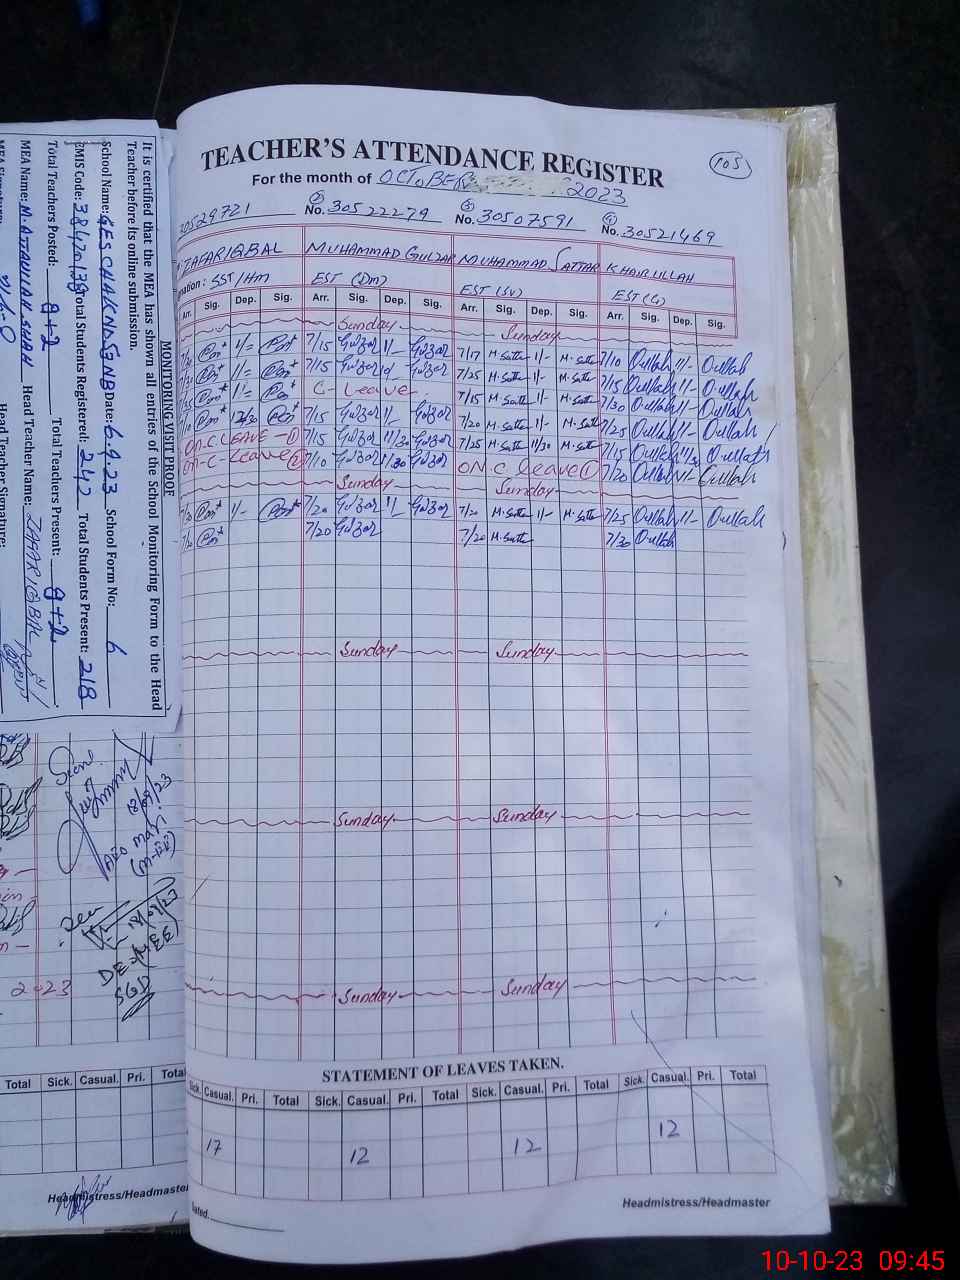 TEACHER'S ATTENDANCE REGISTER
105
For the month of OCTOBER 2023
30529721 ② No. 30522279 ③ No. 30507591 ④ No. 30521469
ZAFARIQBAL MUHAMMAD GULZAR MUHAMMAD SATTAR KHAIRULLAH
nation: SST/Hm EST (Dm) EST (SV) EST (G)
Arr. Sig. Dep. Sig. Arr. Sig. Dep. Sig. Arr. Sig. Dep. Sig. Arr. Sig. Dep. Sig.
Sunday Sunday
7/15 Gulzar 11/- Gulzar 7/17 M.Sattar 11/- M.Sattar 7/10 Oullah 11/- Oullah
7/15 Gulzar Gulzar 7/25 M.Sattar 11/- M.Sattar 7/15 Oullah 11/- Oullah
C- Leave 7/15 M.Sattar 11/- M.Sattar 7/30 Oullah 11/- Oullah
12/30 7/15 Gulzar 11/- Gulzar 7/20 M.Sattar 11/- M.Sattar 7/25 Oullah 11/- Oullah
ON.C.LEAVE-① 7/15 Gulzar 11/30 Gulzar 7/25 M.Sattar 11/30 M.Sattar 7/15 Oullah 11/30 Oullah
On-C-Leave② 7/10 Gulzar 11/30 Gulzar ON.C leave① 7/20 Oullah 11/- Oullah
Sunday Sunday
11/- 7/20 Gulzar 11/- Gulzar 7/20 M.Sattar 11/- M.Sattar 7/25 Oullah 11/- Oullah
7/20 Gulzar 7/20 M.Sattar 7/30 Oullah
Sunday Sunday
Sunday Sunday
Sunday Sunday
STATEMENT OF LEAVES TAKEN.
Sick. Casual. Pri. Total Sick. Casual. Pri. Total Sick. Casual. Pri. Total Sick. Casual. Pri. Total
17 12 12 12
Headmistress/Headmaster
Dated.
MONITORING VISIT PROOF
It is certified that the MEA has shown all entries of the School Monitoring Form to the Head
Teacher before its online submission.
School Name: GES CHAK No 53 NB Date: 6.9.23 School Form No: 6
EMIS Code: Total Students Registered: 242 Total Students Present: 218
Total Teachers Posted: 8+2 Total Teachers Present: 8+2
MEA Name: M. ATTAULLAH SHAH Head Teacher Name: ZAFARIQBAL
MEA Signature: Head Teacher Signature:
Seen
18/09/23
AEO
(M-EE)
18/09/23
DEO(M-EE)
SGD
2-23
Total Sick. Casual. Pri. Total
Headmistress/Headmaster
10-10-23 09:45